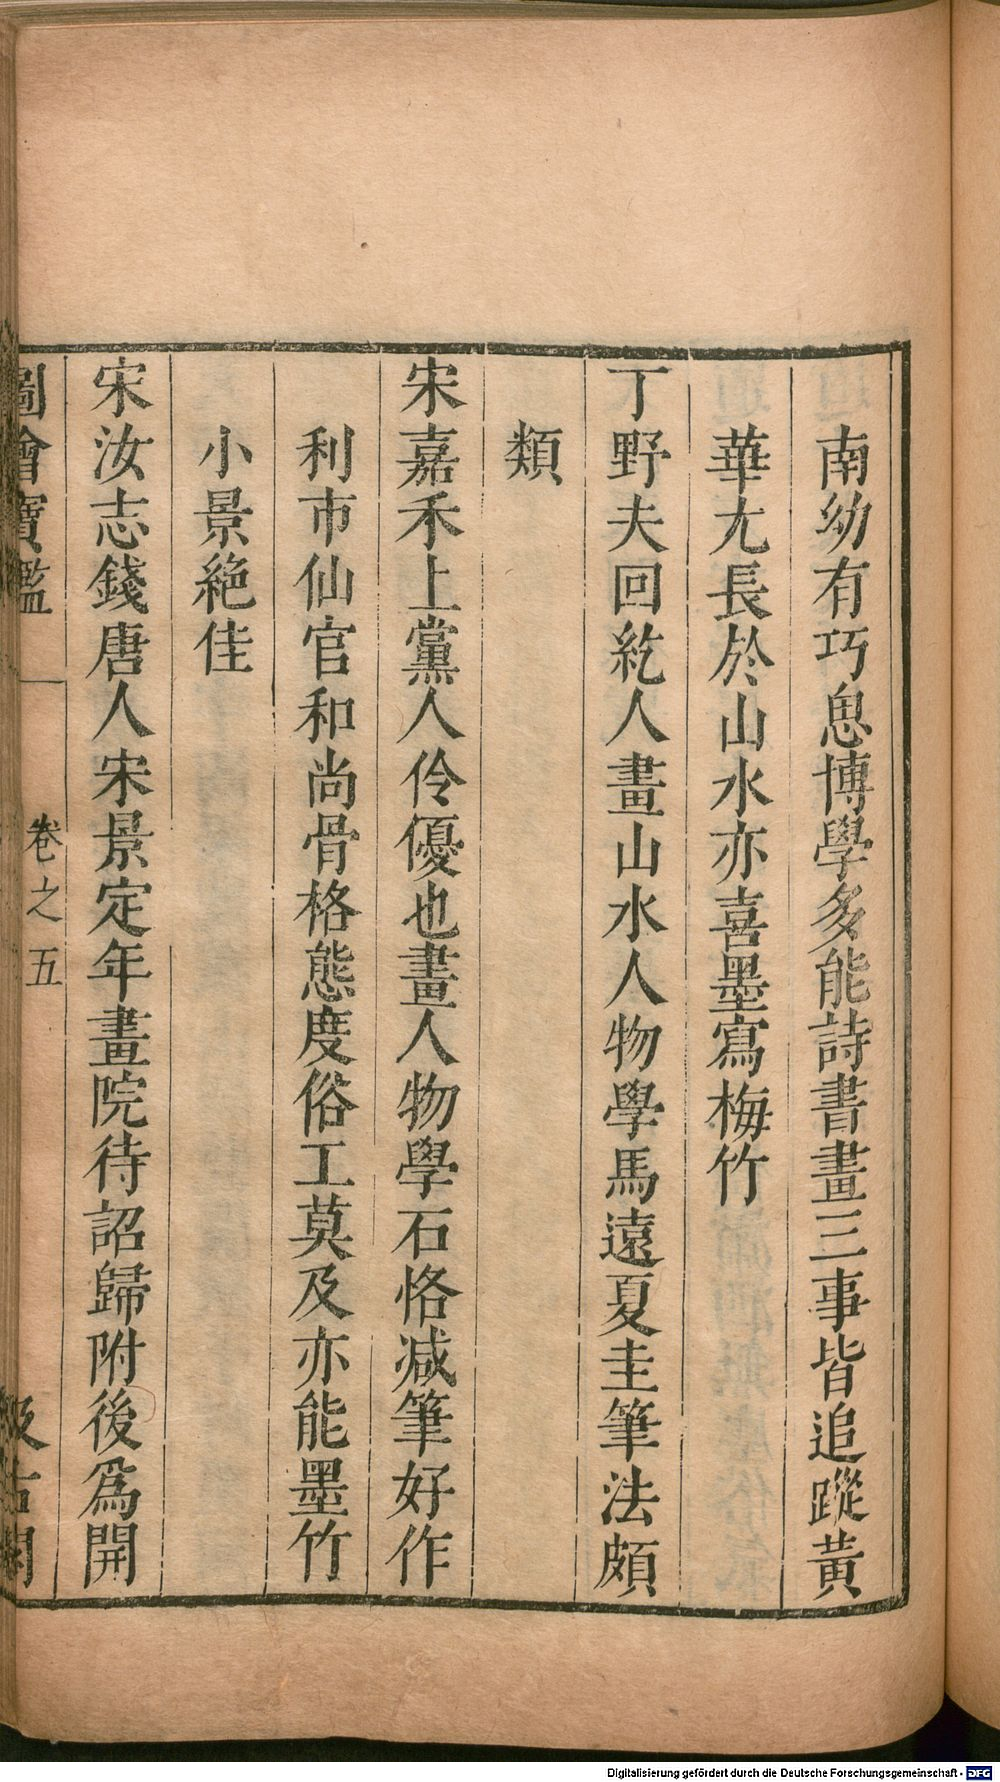 南幼有巧思博學多能詩書畫三事皆追蹤黃
華尢長於山水亦喜墨寫梅竹
丁野夫回紇人畫山水人物學馬遠夏圭筆法頗
類
宋嘉禾上黨人伶優也畫人物學石恪减筆好作
利市仙官和尚骨格態度俗工莫及亦能墨竹
小景絶佳
宋汝志錢唐人宋景定年畫院待詔歸附後爲開
圖繪寶鑑 卷之五 汲古閣
Digitalisierung gefördert durch die Deutsche Forschungsgemeinschaft - DFG